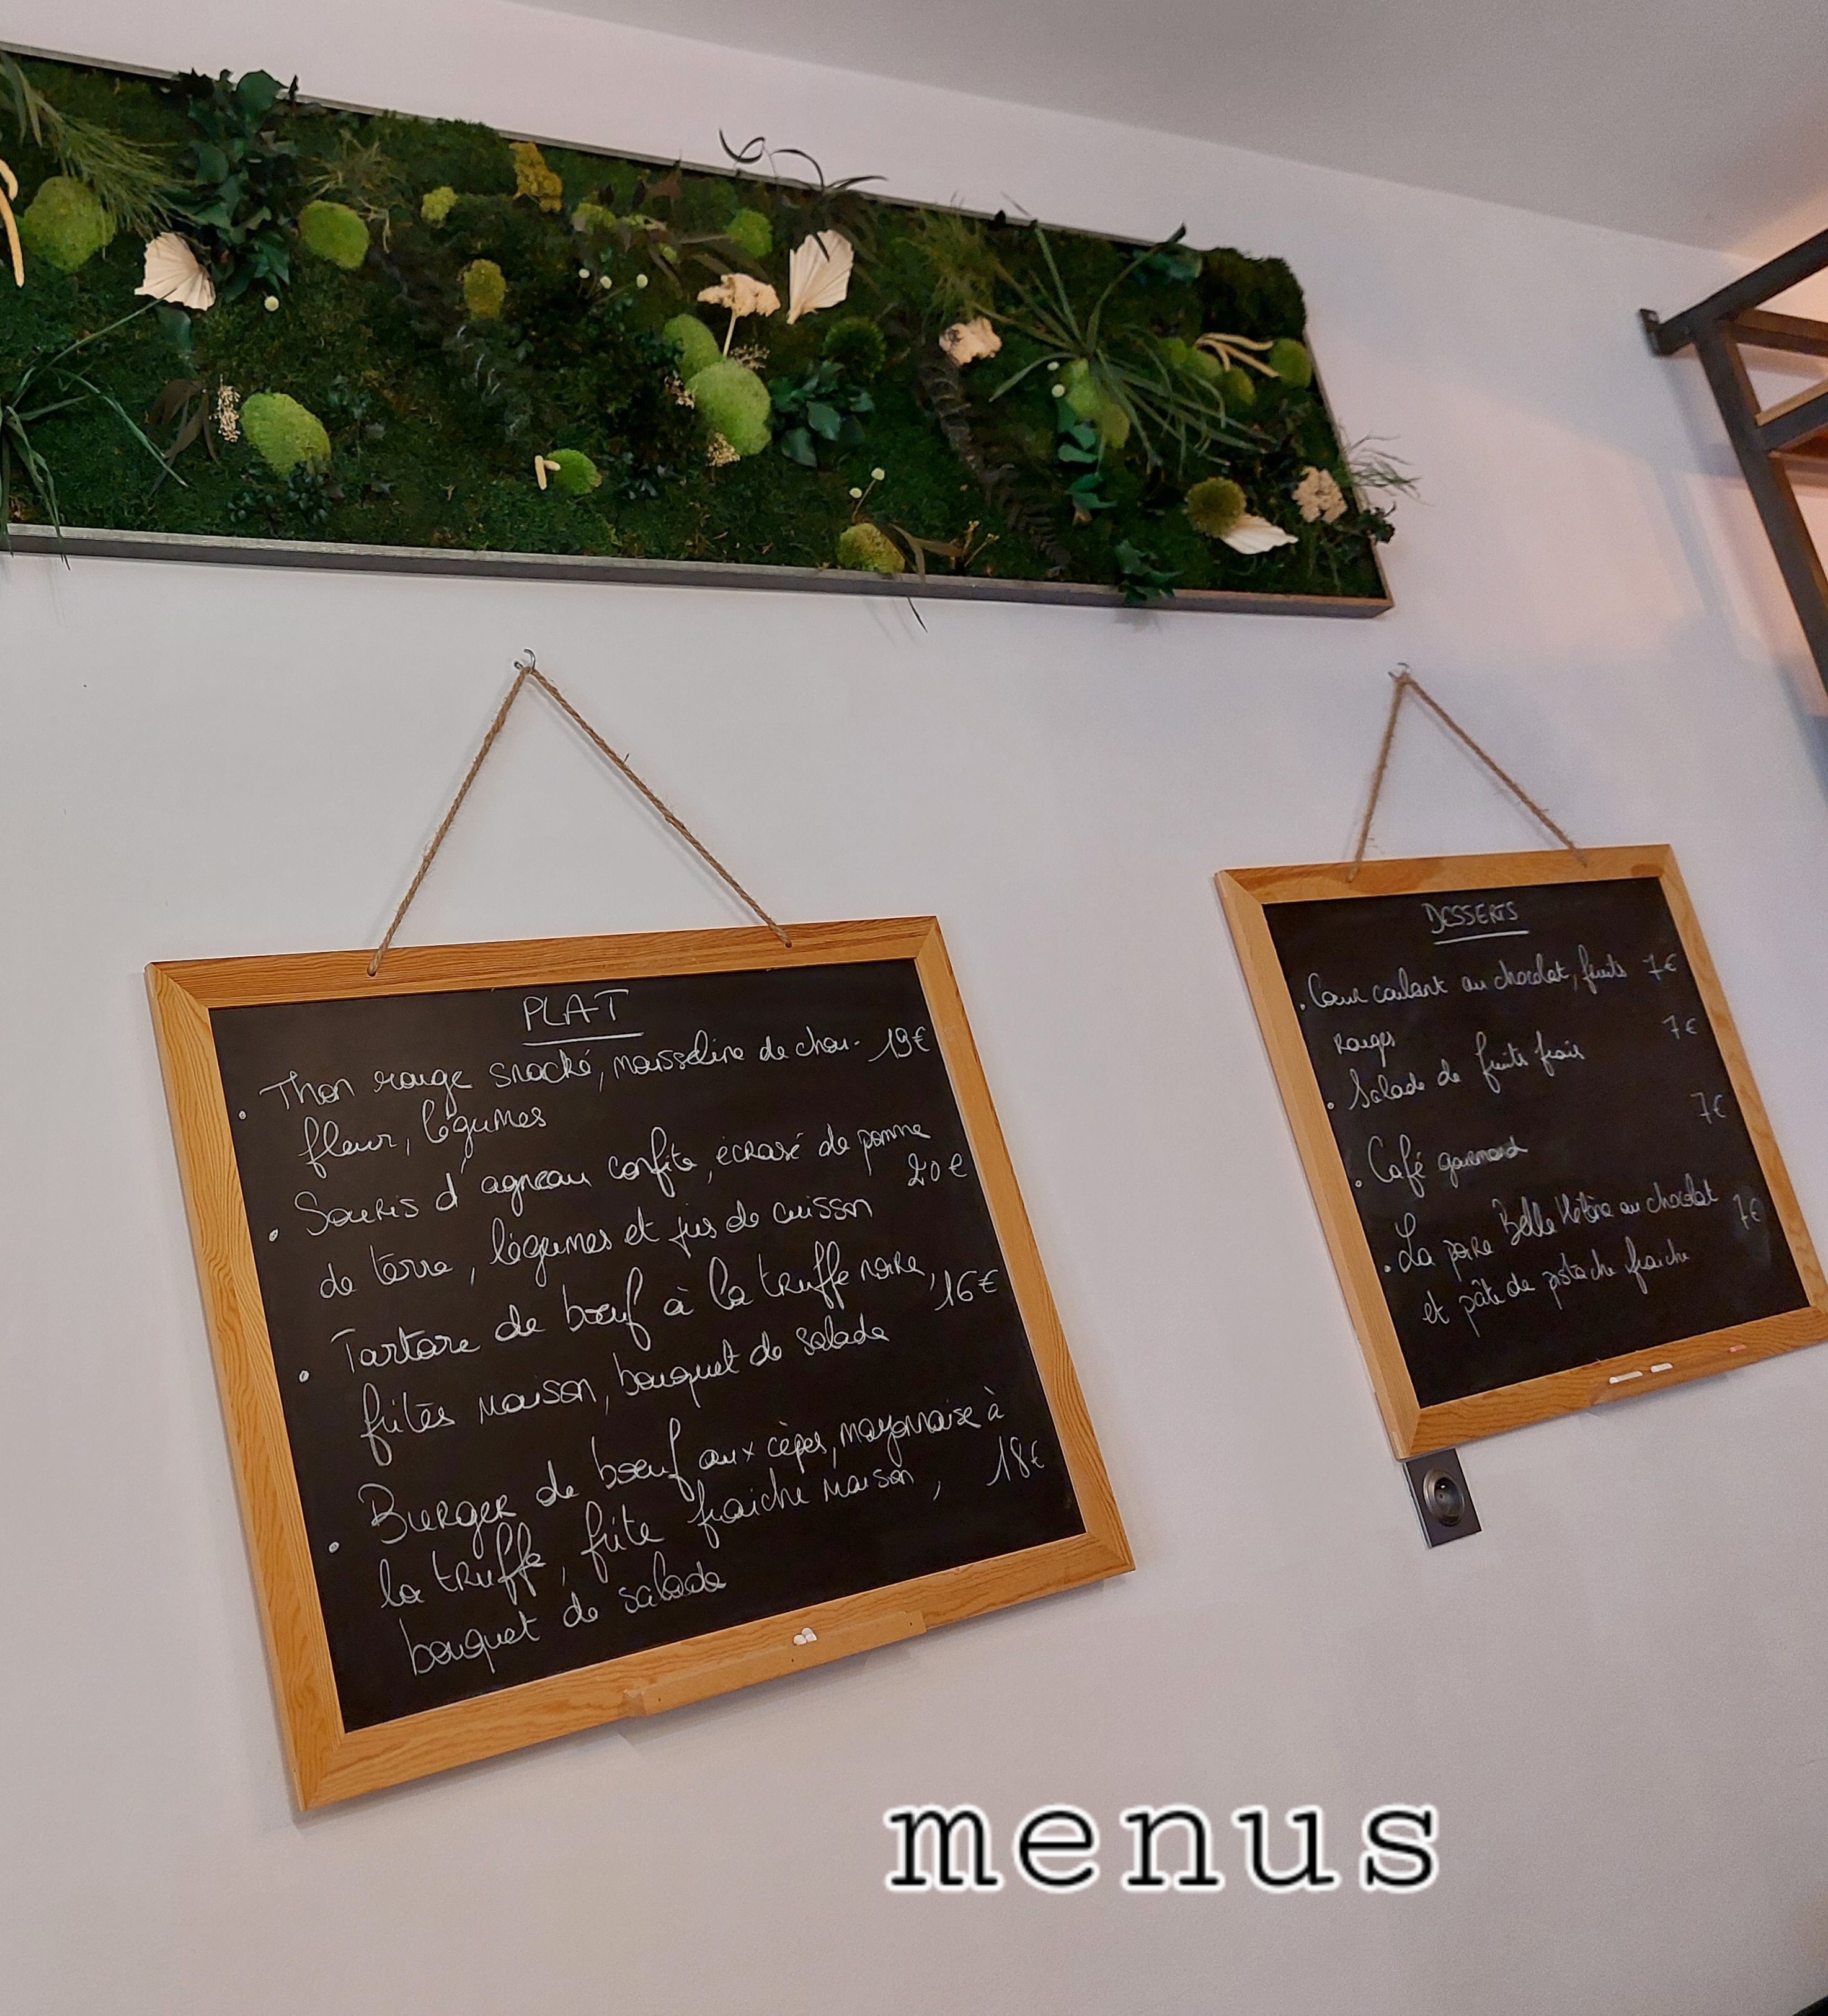 PLAT
. Thon rouge snacké, mousseline de chou- 19€
fleur, légumes
. Souris d'agneau confite, écrasé de pomme
de terre, légumes et jus de cuisson 20€
. Tartare de bœuf à la truffe noire,
frites maison, bouquet de salade 16€
. Burger de bœuf aux cèpes, mayonnaise à
la truffe, frite fraiche maison, 18€
bouquet de salade
DESSERTS
. Cœur coulant au chocolat, fruits 7€
rouges
. Salade de fruits frais 7€
. Café gourmand 7€
. La poire Belle Hélène au chocolat 7€
et pâte de pistache fraiche
menus